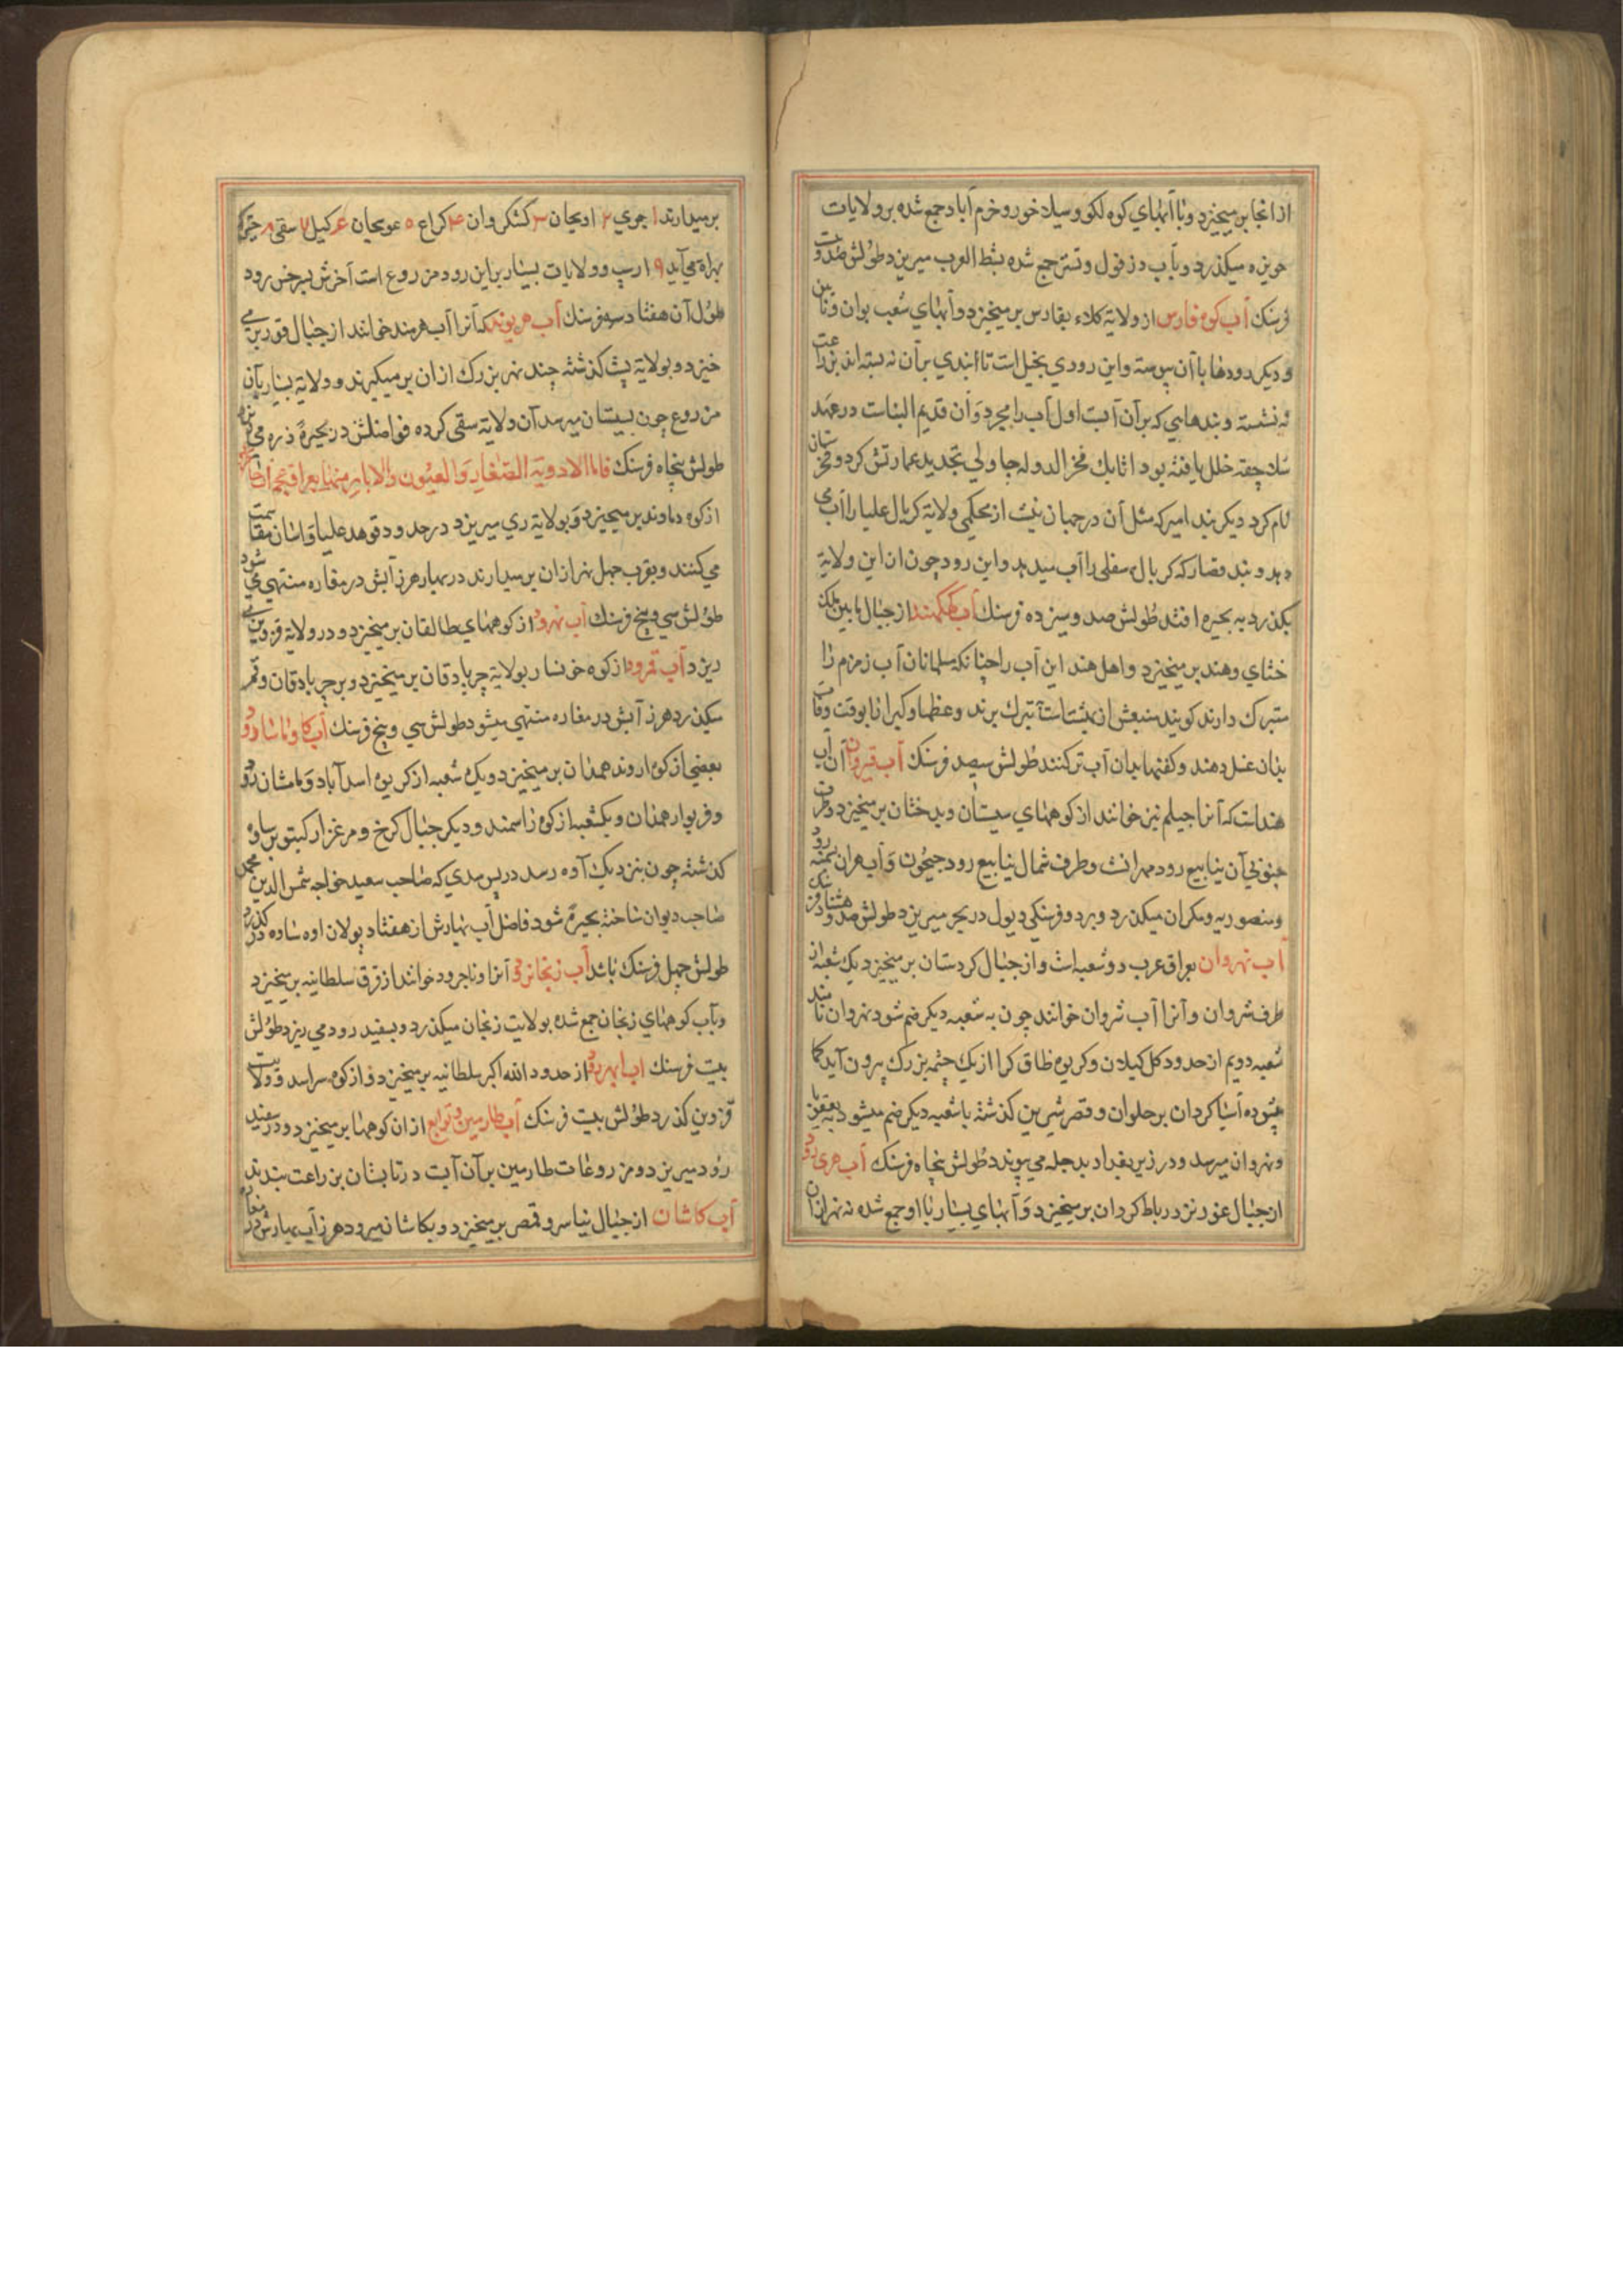 از آنجا بر میخیزد و با آبهای کوه لکو و سیلاخور و خرم آباد جمع شده بر ولایات
حویزه میکذرد و بآب دزفول و تستر جمع شده بشط العرب میریزد طولش صد و
فرسنک آب کوه فارس از ولایة کلاء بفارس بر میخیزد و آبهای شعب بوان و
و دیکر رودها با آن پیوسته و این رودی بخیل است تا ابندی بر آن نه بسته اند بزراعت
نه نشسته و بندهایی که بر آن آبست اول آب رامجرد و آن قدیم البناست در عهد
سلاجقه خلل یافته بود اتابک فخر الدوله چاولی تجدید عمارتش کرد و فخرستان
نام کرد دیکر بند امیر که مثل آن در جهان نیست از محکمی ولایة کربال علیا را آب می
دهد و بند قصار که کربال سفلی را آب میدهد و این رود چون ان این ولایة
بکذرد به بحیره افتد طولش صد و سیزده فرسنک آب از جبال مابین ملک
ختای و هند بر میخیزد و اهل هند این آب را چنانکه مسلمانان آب زمزم را
متبرک دارند کویند منبعش از بهشتاست تبرک برند و عظما و کبرا را بوقت وفات
بدان غسل دهند و کفنها بدان آب تر کنند طولش سیصد فرسنک آب قیروان آن آب
هنداست که آنرا جیلم نیز خوانند از کوههای سیستان و بدخشان بر میخیزد و طرف
جنوبی آن ینابیع رود مهرانست و طرف شمال ینابیع رود جیحون و آب مهران
و منصوریه و مکران میکذرد و بر دو فرسنکی دیول در بحر میریزد طولش صد و هشتاد فرسنک
آب نهروان بعراق عرب دو شعبه است و از جبال کردستان بر میخیزد یک شعبه از
طرف شروان و آنرا آب شروان خوانند چون به شعبه دیکر ضم شود نهروان نامند
شعبه دویم از حدود کل کیلان و کریوه طاق کرا از یک چشمه بزرک بیرون آید که
آسیا کردان بر حلوان و قصر شیرین کذشته با شعبه دیکر ضم میشود بعقوبا
و نهروان میرسد و در زیر بغداد بدجله می پیوندد طولش پنجاه فرسنک آب هری رود
از جبال غور نزد رباط کردان بر میخیزد و آبهای بسیار با او جمع شده نه نهر از آن
بر میدارند ۱ جوی ۲ اویجان ۳ کشکروان ۴ کراع ۵ عوسجان ۶ کیل ۷ سقی ۸
بهراة می آید ۹ ارسب و ولایات بسیار بر این رود مزروع است آخرش بسرخس رود
طول آن هفتاد و سه فرسنک آب هریوند که آنرا آب هرمند خوانند از جبال قور بر می
خیزد و بولایة بست کذشته چند نهر بزرک از ان بر میکیرند و ولایة بسیار بآن
مزروع چون بسیستان میرسد آن ولایة سقی کرده فواضلش در بحیرهٔ ذره می
طولش پنجاه فرسنک فاما الاودیة الصغار و العیون و الابار منها بعراق عجم
از کوه دماوند بر میخیزد و بولایة ری میریزد در حدود قوهد علیا و
می کنند و بقرب چهل نهر از ان بر میدارند در بهار هرز آبش در مفازه منتهی می شود
طولش سی و پنج فرسنک آب نهرود از کوههای طالقان بر میخیزد و در ولایة قزوین می
ریزد آب قمرود از کوه خونسار بولایة جرباد قان بر میخیزد و بر جرباد قان و قم
میکذرد هرز آبش در مفازه منتهی میشود طولش سی و پنج فرسنک آب کاوماسارود
بعضی از کوه اروند همدان بر میخیزد و یک شعبه از کریوه اسد آباد و ماهشان رود
و فریوار همدان و یکشعبه از کوه راسمند و دیکر جبال کرخ و مرغزار کیتو بر ساوه
کذشته چون بنزدیک آوه رسد در پس سدی که صاحب سعید خواجه شمس الدین محمد
صاحب دیوان ساخته بحیره شود فاضل آب بهارش از هفتاد پولان اوه ساوه کذرد
طولش چهل فرسنک باشد آب زنجانرود آنرا و ناجرود خوانند از قرق سلطانیه بر میخیزد
و بآب کوههای زنجان جمع شده بولایت زنجان میکذرد و بسفید رود می ریزد طولش
بیست فرسنک آب ابهررود از حدود الله اکبر سلطانیه بر میخیزد و از کوه سراسد و ولایت
قزوین کذرد طولش بیست فرسنک آب طارمین و توابع از ان کوهها بر میخیزد و در سفید
رود میریزد و مزروعات طارمین بر آن آبست در تابستان بزراعت ببندند
آب کاشان از جبال نیاسر و قمصر بر میخیزد و بکاشان میرود هرز آب بهارش در مفازه